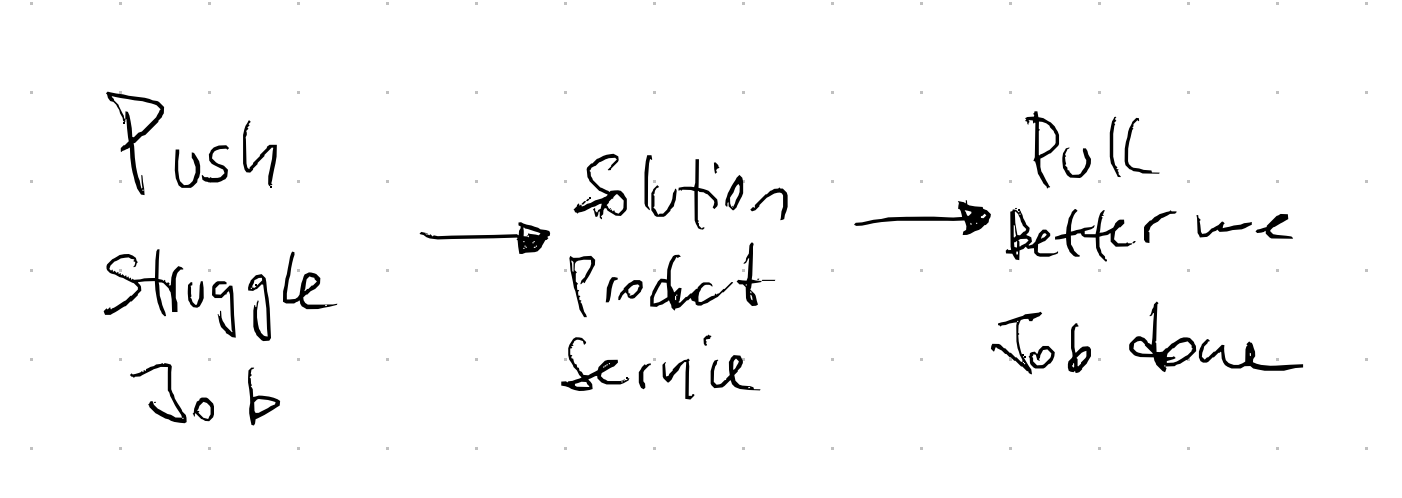 Push
Struggle
Job
Solution
Product
Service
Pull
Better me
Job done